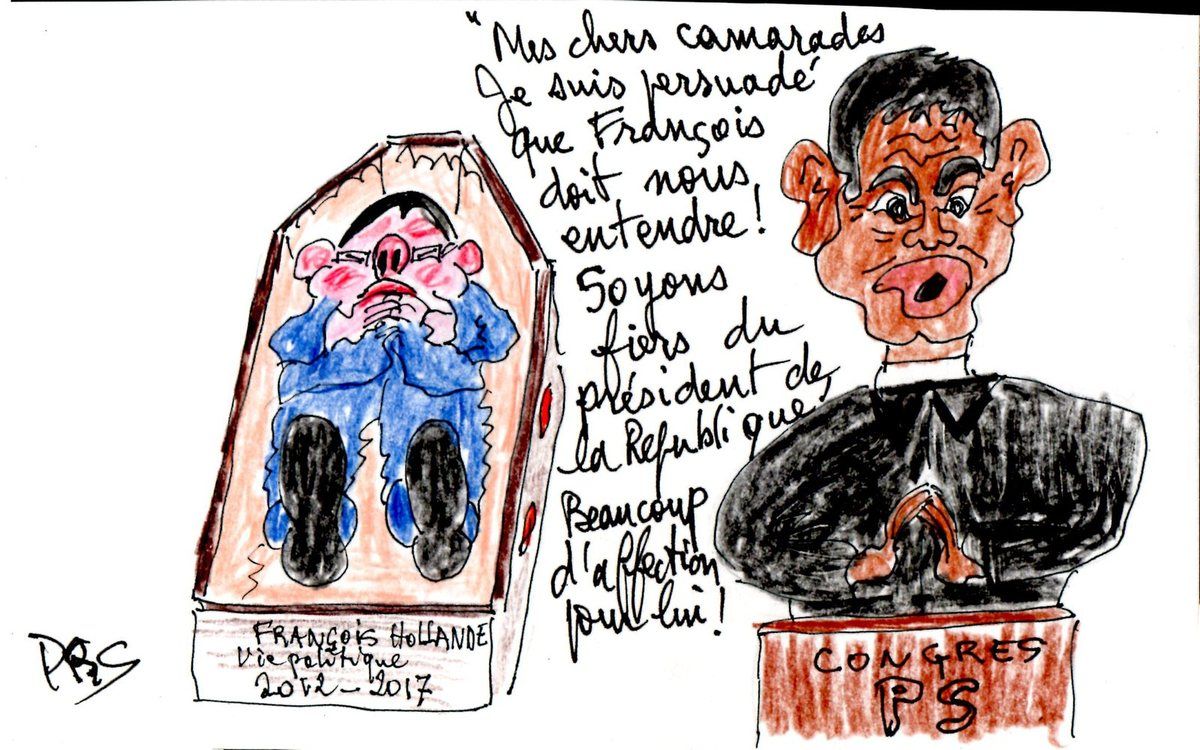 "Mes chers camarades
Je suis persuadé
que François
doit nous
entendre!
Soyons
fiers du
président de
la République,
Beaucoup
d'affection
pour lui!
FRANÇOIS HOLLANDE
Vie politique
2012-2017
CONGRES
PS